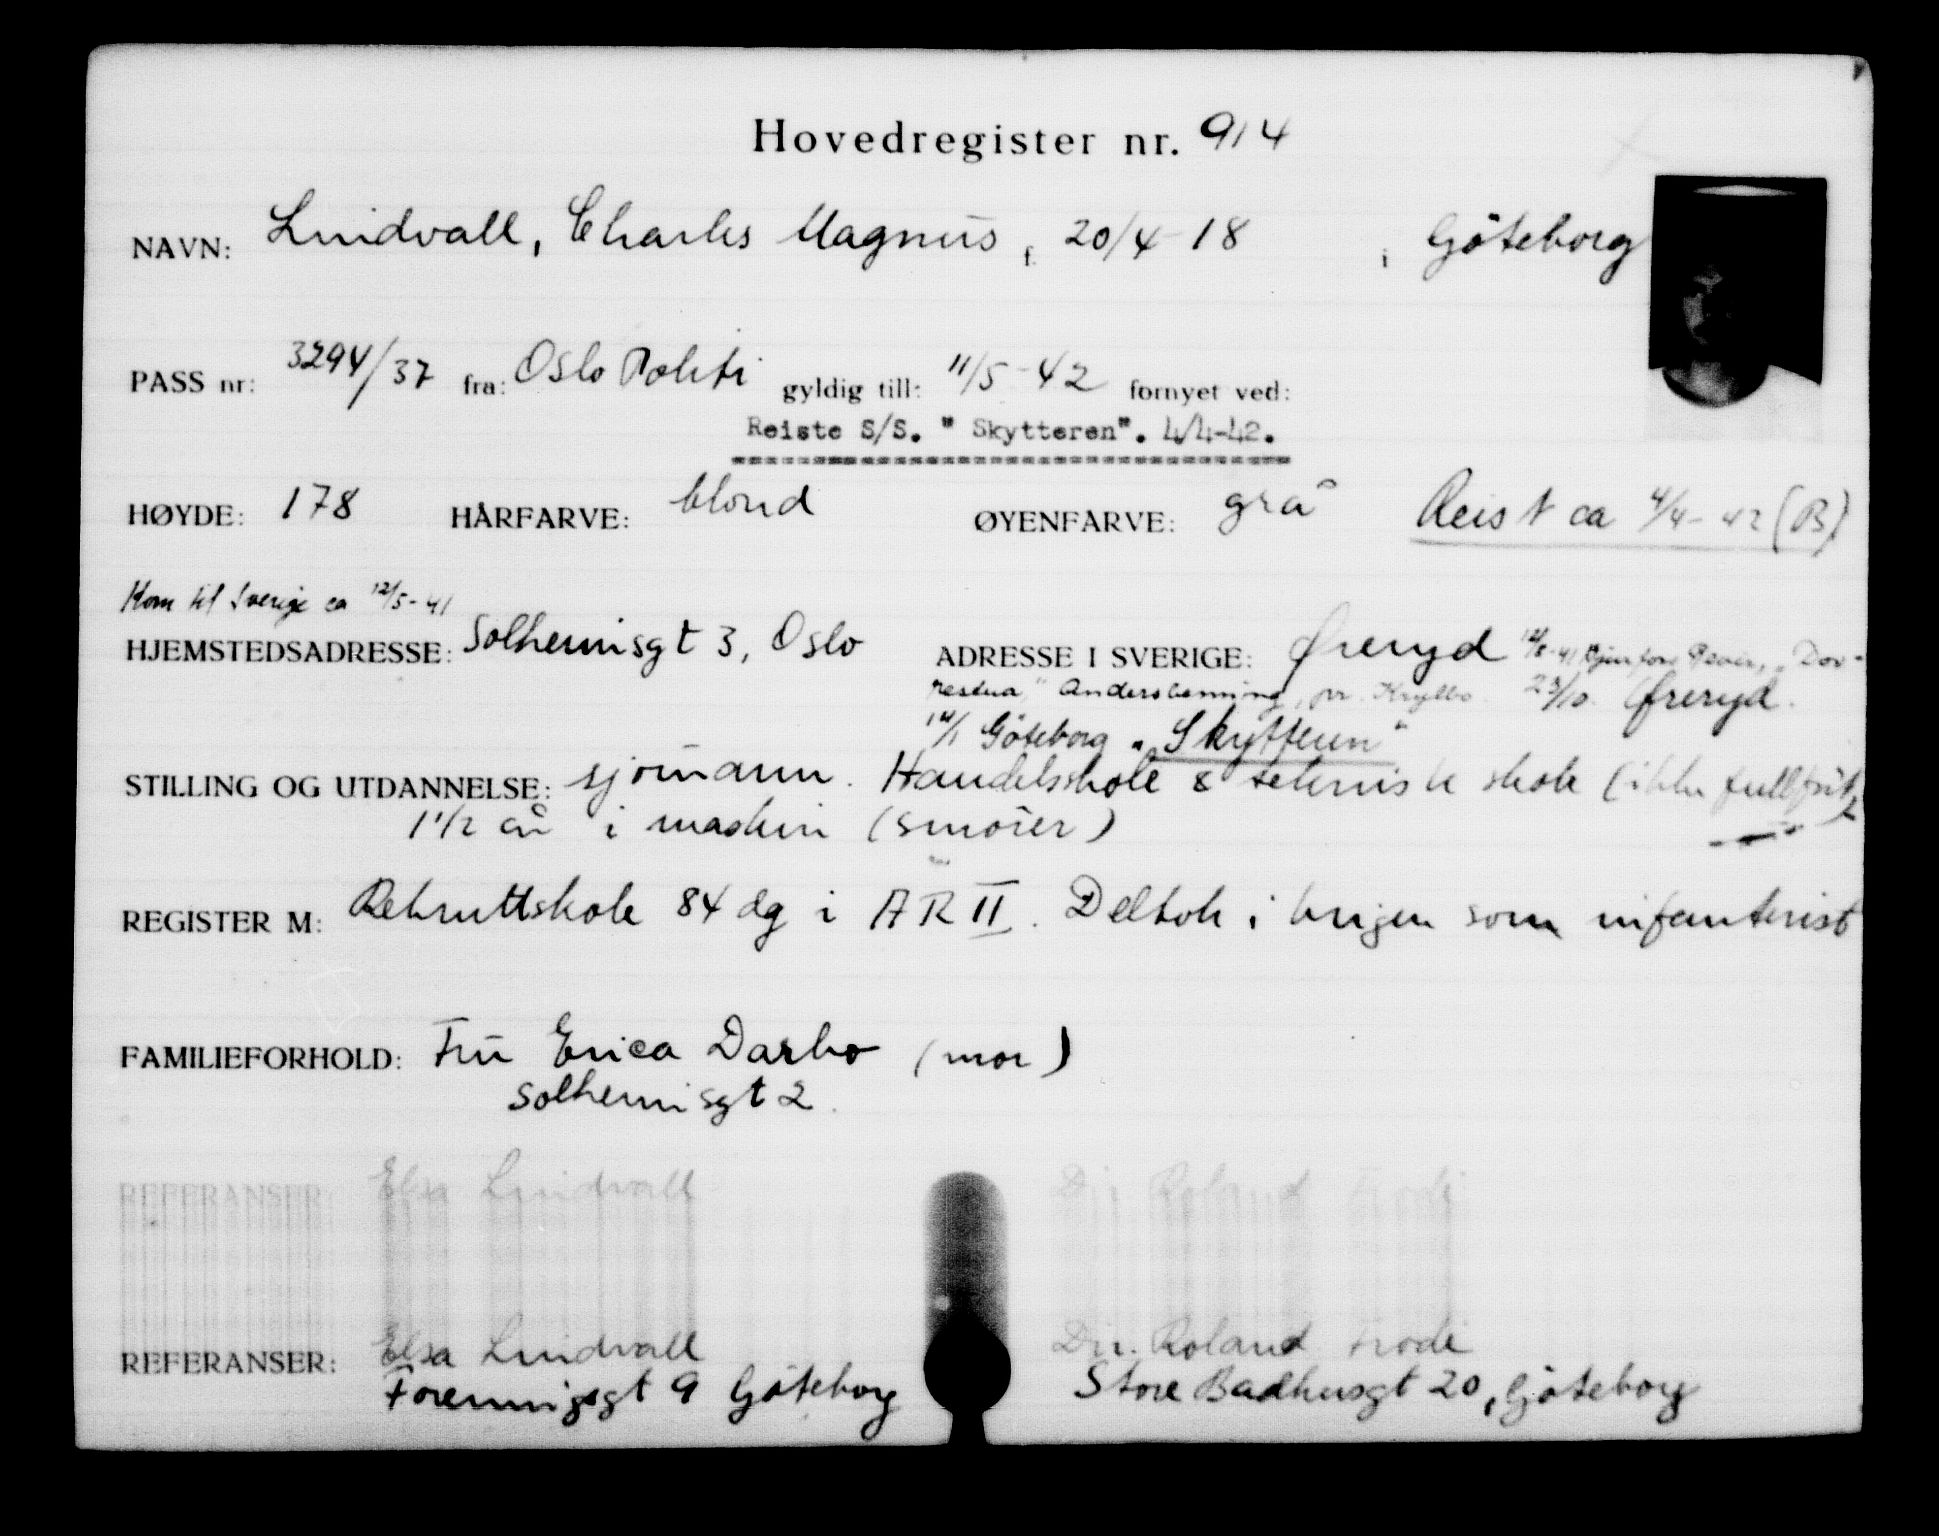 Hovedregister nr. 914
NAVN: Lindvall, Charles Magnus, f. 20/4-18 i Göteborg
PASS nr: 3294/37 fra: Oslo Politi gyldig till: 11/5-42 fornyet ved:
Reiste S/S. "Skytteren". 4/4-42.
HØYDE: 178 HÅRFARVE: blond ØYENFARVE: grå Reist ca 4/4-42 (B)
Kom til Sverige ca 12/5-41
HJEMSTEDSADRESSE: Solheimsgt 3, Oslo ADRESSE I SVERIGE: Øreryd
restua," Andersbenning, pr. Krylbo. 23/10. Øreryd.
14/1 Göteborg "Skytteren"
STILLING OG UTDANNELSE: sjömann. Handelsskole & teknisk skole (ikke fullført)
1 1/2 år i maskin (smörer)
REGISTER M: Rekruttskole 84 dg i AR II. Deltok i krigen som infanterist
FAMILIEFORHOLD: Fru Erica Darbo (mor)
Solheimsgt 2.
REFERANSER: Elsa Lindvall Dir. Roland Frodi
REFERANSER: Elsa Lindvall Dir. Roland Frodi
Foreningsgt 9 Göteborg Store Badhusgt 20, Göteborg